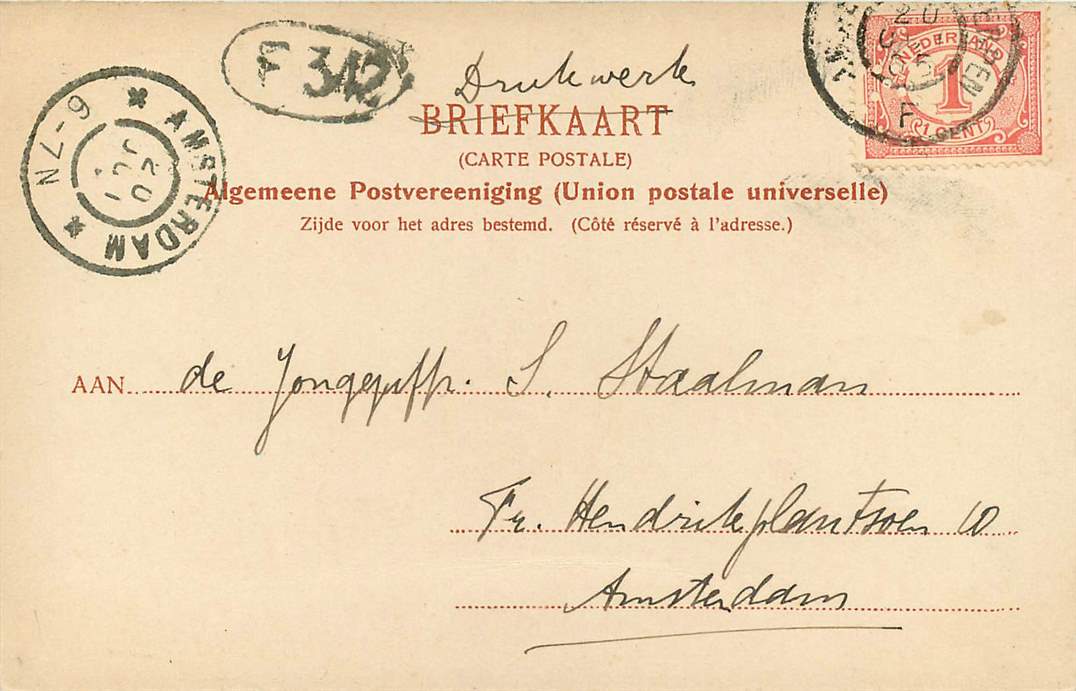 Drukwerk
BRIEFKAART
(CARTE POSTALE)
Algemeene Postvereeniging (Union postale universelle)
Zijde voor het adres bestemd. (Côté réservé à l'adresse.)
AAN de Jongejuffr. S. Staalman
Fr. Hendrikplantsoen 10
Amsterdam
AMSTERDAM
6-7N
20
342
NEDERLAND
1
1 CENT
20
F